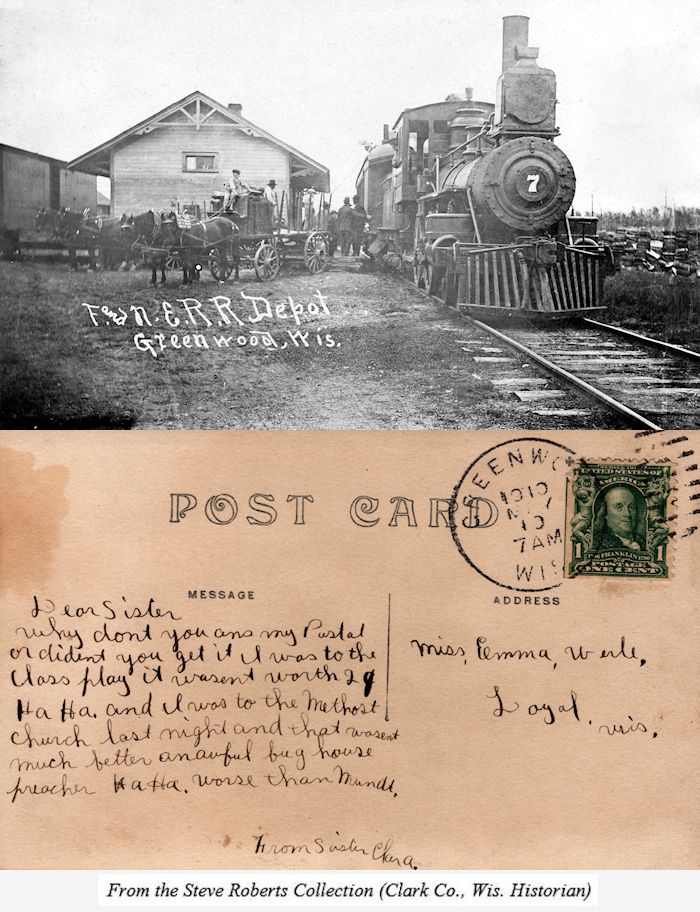 7
F. and N. E. R. R. Depot
Greenwood, Wis.
POST CARD
GREENWO
1910
MAY
10
7AM
WIS
SERIES 1902
UNITED STATES OF
AMERICA
1 FRANKLIN 1
POSTAGE
ONE CENT
MESSAGE
ADDRESS
Dear Sister
why dont you ans my Postal
or dident you get it I was to the
Class play it wasent worth 2¢
Ha Ha. and I was to the Methost
church last night and that wasent
much better an awful bug house
preacher Ha Ha. worse than Mundt.
From Sister Clara.
Miss, Emma, Werle,
Loyal.
wis.
From the Steve Roberts Collection (Clark Co., Wis. Historian)